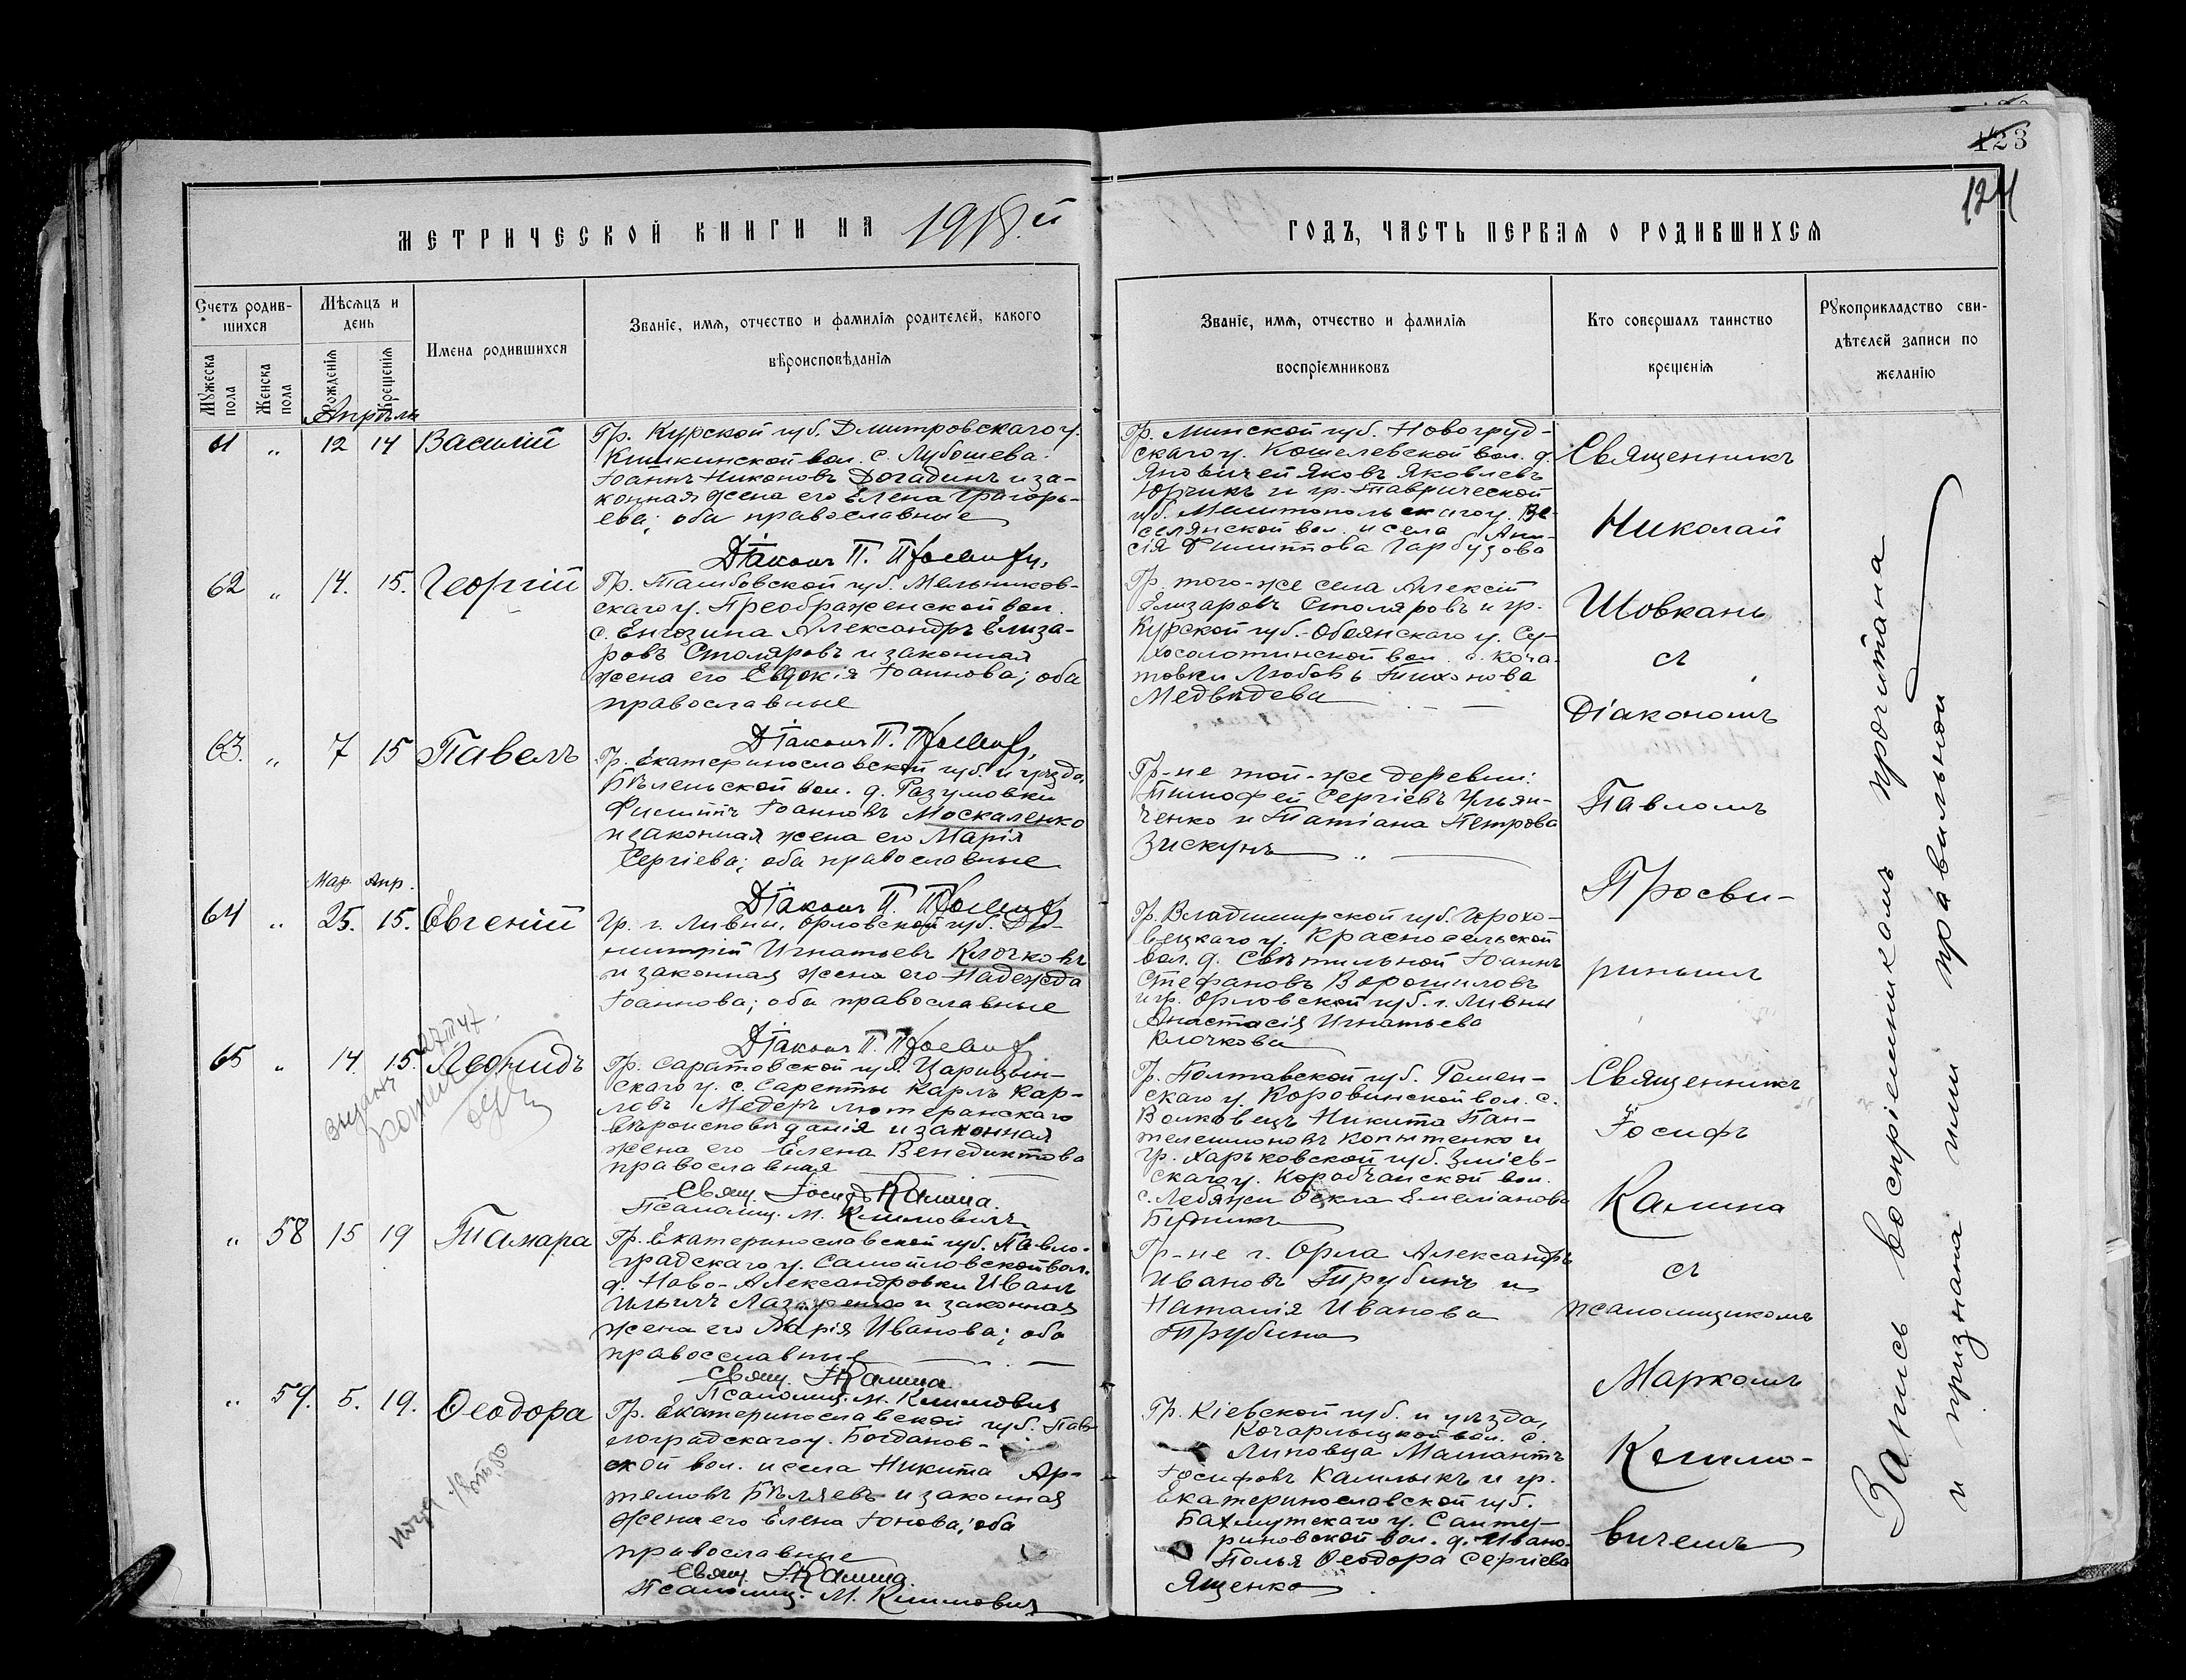 123
124
МЕТРИЧЕСКОЙ КНИГИ НА 1918.й
ГОДЪ, ЧАСТЬ ПЕРВАЯ О РОДИВШИХСЯ
Счетъ родив-
шихся
Мужеска пола
Женска пола
Мѣсяцъ и
день
Рожденія
Крещенія
Имена родившихся
Званіе, имя, отчество и фамилія родителей, какого
вѣроисповѣданія
Званіе, имя, отчество и фамилія
воспріемниковъ
Кто совершалъ таинство
крещенія
Рукоприкладство сви-
дѣтелей записи по
желанію
Апрѣль
61 " 12 14 Василій
Гр. Курской губ. Дмитровскаго у.
Кишкинской вол. с. Лубошева
Іоаннъ Никоновъ Догадинъ и за-
конная жена его Елена Григорь-
ева; оба православные
Діаконъ П.
Гр. Минской губ. Новогруд-
скаго у. Кошелевской вол. д.
Яновичей Яковъ Яковлевъ
Юрчикъ и гр. Таврической
губ. Мелитопольскаго у. Ве-
селянской вол. и села Ани-
сія Филиппова Гарбузова
62 " 14. 15. Георгій
Гр. Тамбовской губ. Мельников-
скаго у. Преображенской вол.
с. Енгозина Александръ Елиза-
ровъ Столяровъ и законная
жена его Евдокія Іоаннова; оба
православные
Діаконъ П.
Гр. того-же села Алексій
Елизаровъ Столяровъ и гр.
Курской губ. Обоянскаго у. Су-
хосолотинской вол. с. Коча-
товки Любовь Тихонова
Медвѣдева
63. " 7 15 Павелъ
Гр. Екатеринославской губ. и уѣзда,
Бѣленьской вол. д. Разумовки
Филиппъ Іоанновъ Москаленко
и законная жена его Марія
Сергіева; оба православные
Діаконъ П.
Гр-не той-же деревни:
Тимофей Сергіевъ Ульян-
ченко и Татіана Петрова
Зискунъ
Мар. Апр.
64 " 25. 15. Евгеній
Гр. г. Ливны, Орловской губ. Ди-
митрій Игнатьевъ Клочковъ
и законная жена его Надежда
Іоаннова; оба православные
Діаконъ П.
Гр. Владимирской губ. Горохо-
вецкаго у. Красносельской
вол. д. Свѣтильной Іоаннъ
Стефановъ Ворошиловъ
и гр. Орловской губ. г. Ливны
Анастасія Игнатьева
Клочкова
65 " 14. 15. Леонидъ
Гр. Саратовской губ. Царицын-
скаго у. с. Сарепты Карлъ Кар-
ловъ Медеръ лютеранскаго
вѣроисповѣданія и законная
жена его Елена Венедиктова
православная
Свящ. Іосифъ Калина.
Псаломщ. М. Климовичъ
Гр. Полтавской губ. Ромен-
скаго у. Коровинской вол. с.
Волковецъ Никита Пан-
телеимоновъ Копытенко и
гр. Харьковской губ. Зміев-
скаго у. Коробчанской вол.
с. Лебяжи Ѳекла Емеліанова
Будникъ
" 58 15 19 Тамара
Гр. Екатеринославской губ. Павло-
градскаго у. Самойловской вол.
д. Ново-Александровки Иванъ
Ильичъ Лазаренко и законная
жена его Марія Иванова; оба
православные
Свящ. І. Калина
Псаломщ. М. Климовичъ
Гр-не г. Орла Александръ
Ивановъ Трубинъ и
Наталія Иванова
Трубина
" 59. 5. 19. Ѳеодора
Гр. Екатеринославской губ. Пав-
лоградскаго у. Богданов-
ской вол. и села Никита Ар-
темовъ Бѣляевъ и законная
жена его Елена Іонова; оба
православные
Свящ. І. Калина.
Псаломщ. М. Климовичъ
Гр. Кіевской губ. и уѣзда,
Кочарлыцкой вол. с.
Липовца Малантъ
Іосифовъ Калмыкъ и гр.
Екатеринославской губ.
Бахмутскаго у. Санту-
риновской вол. д. Ивано-
Полья Ѳеодора Сергіева
Ященко
Священникъ
Николай
Шовкань
съ
Діакономъ
Павломъ
Просви-
рнинымъ
Священникъ
Іосифъ
Калина
съ
псаломщикомъ
Маркомъ
Климо-
вичемъ
Запись воспріемникомъ прочитана
и признана ими правильной